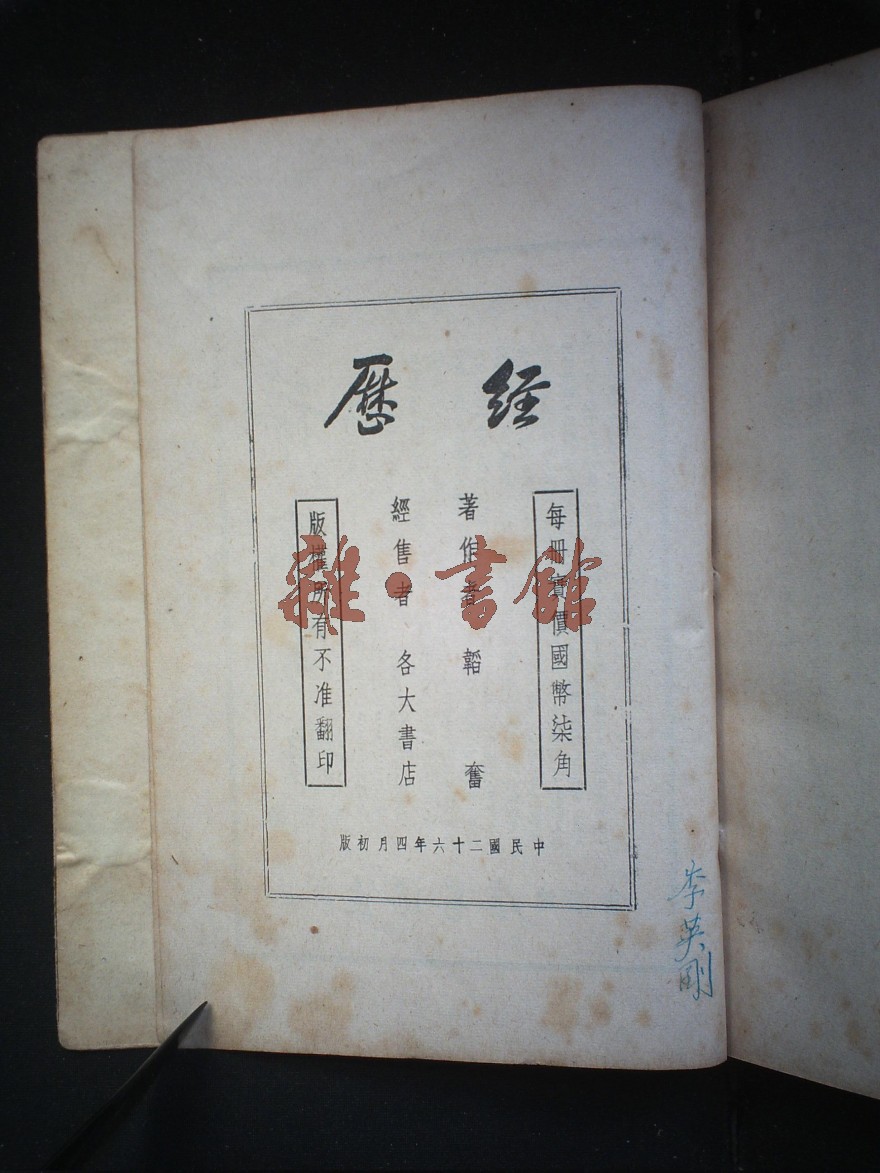 經歷
每册實價國幣柒角
著作者 韜奮
經售者 各大書店
版權所有不准翻印
中民國二十六年四月初版
李英剛
雜·書館